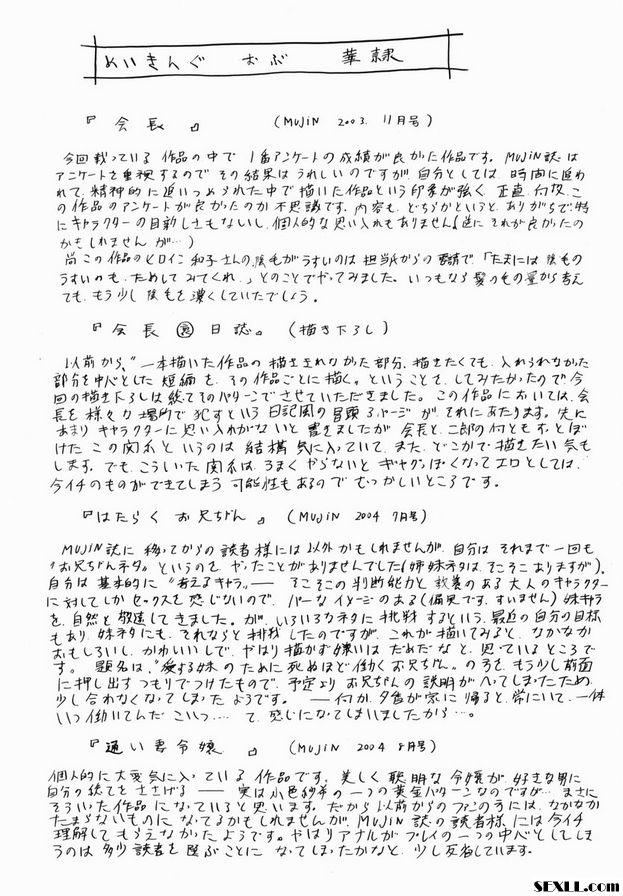 めいきんぐ おぶ 華隷
『会長』 (MUJIN 2003. 11月号)
今回載っている作品の中で 1番アンケートの成績が良かった作品です。MUJIN誌は
アンケートを重視するのでその結果はうれしいのですが、自分としては、時間に追わ
れて、精神的に追いつめられた中で描いた作品という印象が強く 正直、何故、こ
の作品のアンケートが良かったのか不思議です。内容も、どちらかというと、ありがちで、特
にキャラクターの目新しさもないし、個人的な思い入れもありません(逆に それが良かったの
かもしれません が…)
尚 この作品のヒロイン 和子さんの陰毛がうすいのは 担当氏からの要請で、「たまには 陰毛の
うすいのも、ためしてみてくれ。」とのことでやってみました。いつもなら 髪の毛の量から考え
ても、もう少し 陰毛を濃くしていたでしょう。
『会長 ㊙ 日誌。(描き下ろし)
以前から、“一本描いた作品の 描ききれなかった部分、描きたくても、入れられなかった
部分を中心とした 短編を、その作品ごとに描く。ということを、してみたかったので 今
回の描き下ろしは 総てそのパターンでさせていただきました。この作品においては、会
長を 様々な場所で 犯すという 日記風の冒頭 3ページ が、それにあたります。先に
あまり キャラクターに 思い入れがないと 書きましたが 会長と、二郎の何ともすっとぼ
けた この関係 というのは 結構 気に入っていて、また、どこかで描きたい 気も
します。でも、こういった 関係は、うまく やらないと ギャグっぽくなってエロとしては、
今イチのものができてしまう 可能性もあるので むつかしいところです。
『はたらく お兄ちゃん 』 (MUJIN 2004 7月号)
MUJIN誌に 移ってからの読者様には 以外かもしれませんが、自分は それまで一回も
“お兄ちゃんネタ〟というのを やったことがありませんでした(姉妹ネタは、そこそこありますが)。
自分は 基本的に “考えるキャラ〟── そこそこの判断能力と 教養のある 大人のキャラクター
に対してしか セックスを 感じないので、パーなイメージのある(偏見です、すいません)妹キャラ
を、自然と 敬遠してきました。が、いろいろなネタに 挑戦 するという、最近の自分の目標
もあり、妹ネタにも、それならと 挑戦 したのですが、これが描いてみると、なかなか
おもしろいし、かわいいしで、やはり 描かず嫌いは だめだな と、思っているところで
す。 題名は、“愛する妹 のために 死ぬほど働く お兄ちゃん。の方を、もう少し前面
に押し出す つもりでつけたもので、予定より お兄ちゃんの 説明が へってしまったため
少し合わなくなってしまったようです。 ── 何か、夕香が家に 帰ると、常にいて、一体
いつ働いてんだ こいつ…. て、感じになってしまいましたから…。
『通い妻令嬢 』 (MUJIN 2004 8月号)
個人的に大変気に入っている 作品です。美しく 聡明な 令嬢が 好きな男に
自分の 総てを ささげる ── 実は 小邑紗希 の一つの黄金パターンなのですが… まさに
そういった作品に なっていると思います。だから 以前からのファンの方には、なかなか
たまらないものに なってるかもしれませんが、MUJIN 誌の読者様には今イチ
理解して もらえなかったようです。やはりアナルが プレイの一つの中心としてしま
うのは 多少 読者を 選ぶことに なってしまったかなと、少し反省しています。
SEXLL.COM